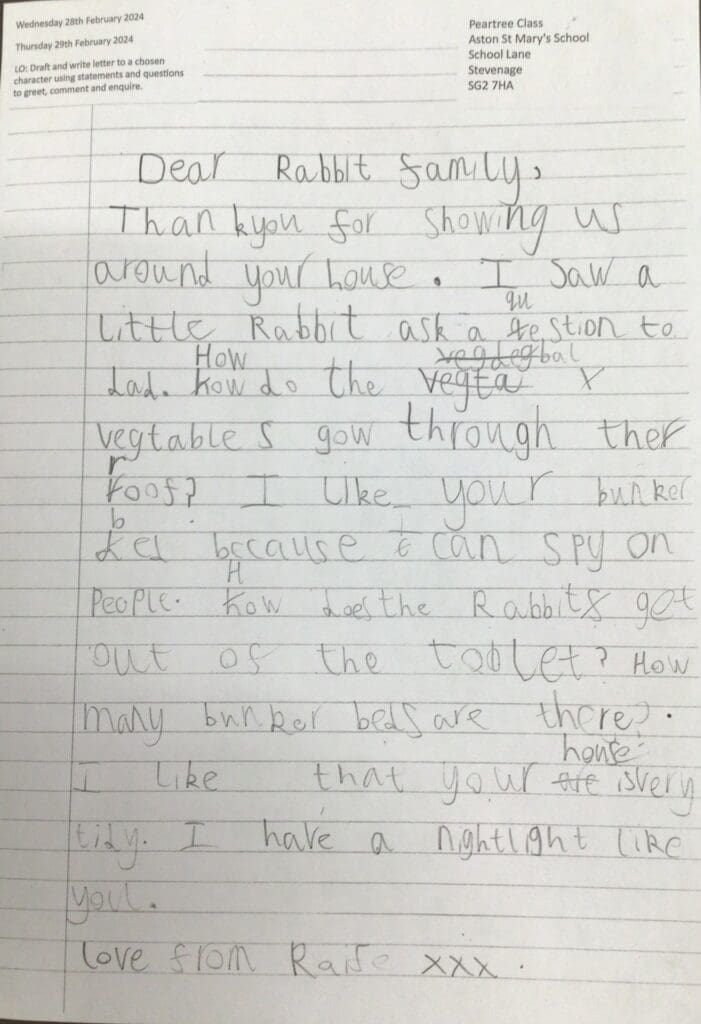 Wednesday 28th February 2024
Thursday 29th February 2024
LO: Draft and write letter to a chosen
character using statements and questions
to greet, comment and enquire.
Peartree Class
Aston St Mary's School
School Lane
Stevenage
SG2 7HA
Dear Rabbit family,
Thankyou for showing us
around your house. I saw a
qu
little Rabbit ask a question to
How vegdegbal
dad. how do the vegta x
vegtables gow through ther
r
roof? I like your bunker
b
bed because i can spy on
H
People. how does the Rabbits get
out of the toblet? How
many bunker beds are there?.
house
I like that your are isvery
tidy. I have a nightlight like
you.
love from xxx.